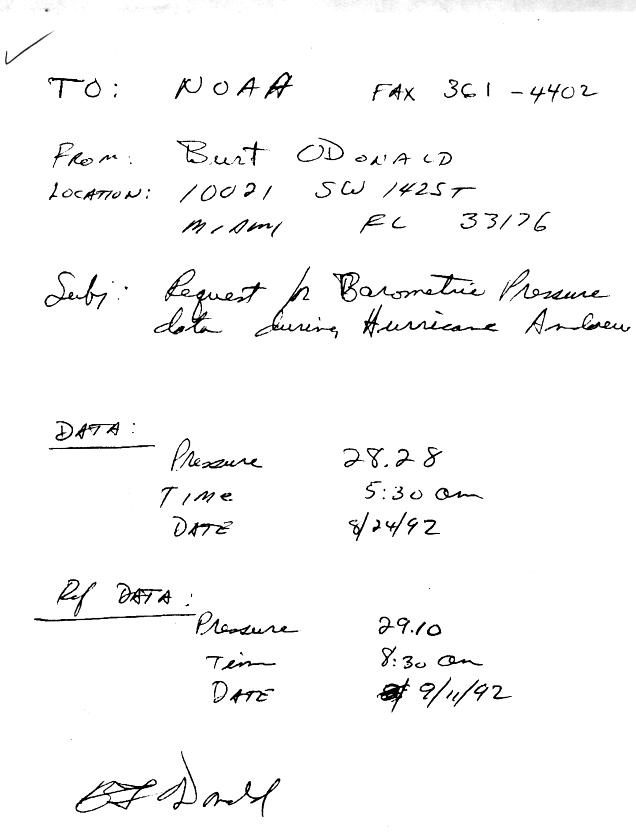 TO: NOAA FAX 361-4402
FROM: Burt ODONALD
LOCATION: 10021 SW 142ST
MIAMI FL 33176
Subj: Request for Barometric Pressure
data during Hurricane Andrew
DATA:
Pressure 28.28
TIME 5:30 am
DATE 8/24/92
Ref DATA:
Pressure 29.10
Time 8:30 am
DATE 9/11/92